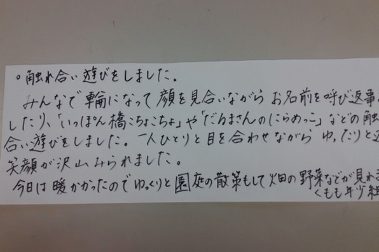 。触れ合い遊びをしました。
みんなで輪になって顔を見合いながら お名前を呼び返事
したり、「いっぽん橋こちょこちょ」や「だるまさんのにらめっこ」などの触
合い遊びをしました。一人ひとりと目を合わせながら ゆったりと
笑顔が沢山
今日は暖かかったので ゆっくりと園庭の散策もして畑の野菜などが見れま
くもも年少組